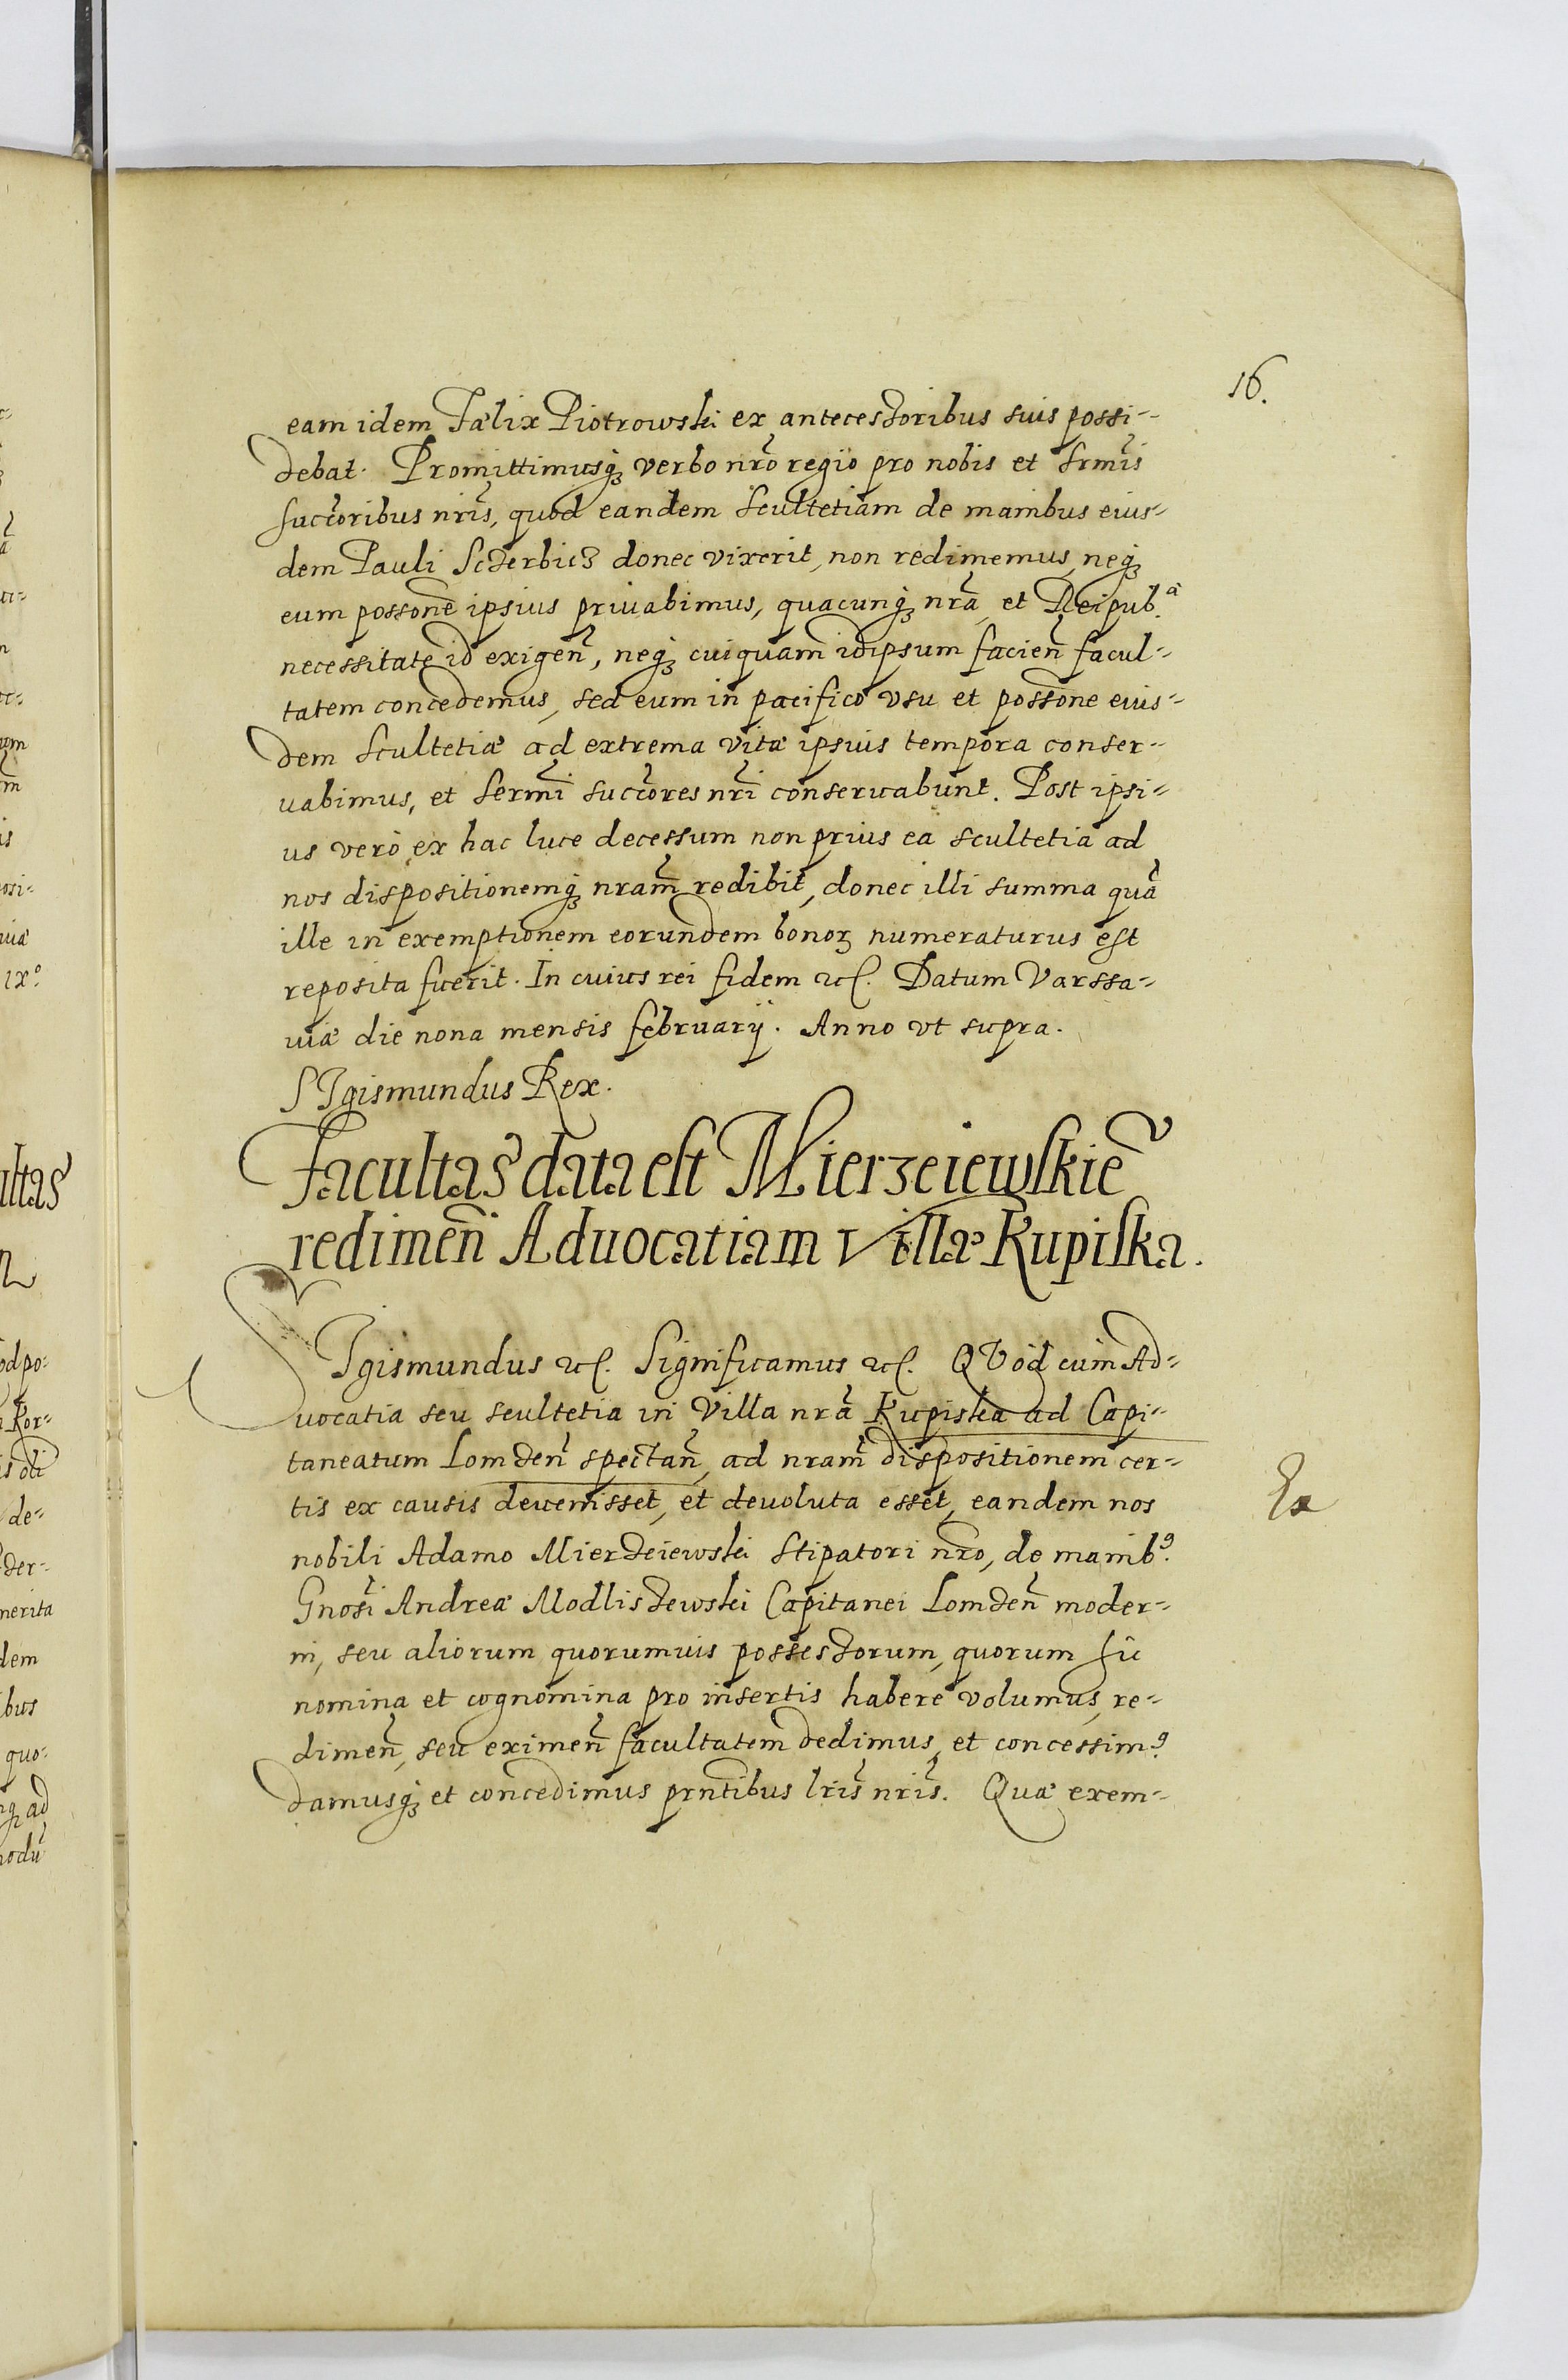 16.
eam idem Fælix Piotrowski ex antecessoribus suis possi-
debat. Promittimusq; verbo nr̃o regio pro nobis et Srm̃is
succ̃oribus nr̃is, quod eandem Scultetiam de manibus eius-
dem Pauli Sczerbicz donec vixerit, non redimemus, neq;
eum possone ipsius priuabimus, quacunq; nrã et Reipub.ᵃ
necessitate id exigeñ, neq; cuiquam idipsum facieñ facul-
tatem concedemus, sed eum in pacifico vsu et possone eius-
dem Scultetiæ ad extrema vitæ ipsius tempora conser-
uabimus, et Serm̃i succ̃ores nr̃i conseruabunt. Post ipsi-
us vero ex hac luce decessum non prius ea scultetia ad
nos dispositionemq; nram̃ redibit, donec illi summa quã
ille in exemptionem eorundem bonoꝝ numeraturus est
reposita fuerit. In cuius rei fidem etc. Datum Varssa-
uiæ die nona mensis februarij. Anno vt supra.
SIgismundus Rex.
Facultas data est Mierzeiewskiẽ
redimeñ Aduocatiam Villæ Kupiska.
SIgismundus etc. Significamus etc. QVod cum Ad-
uocatia seu scultetia in Villa nrã Kupiska ad Capi-
taneatum Lomzeñ spectañ, ad nram̃ dispositionem cer-
tis ex causis deuenisset, et deuoluta esset, eandem nos
nobili Adamo Mierzeiewski Stipatori nr̃o, de manib⁹.
Gnosĩ Andreæ Modliszewski Capitanei Lomzeñ moder-
ni, seu aliorum quorumuis possessorum, quorum hic
nomina et cognomina pro insertis habere volumus, re-
dimeñ, seu eximeñ facultatem dedimus, et concessim⁹.
damusq; et concedimus prñtibus lr̃is nr̃is. Quæ exem-